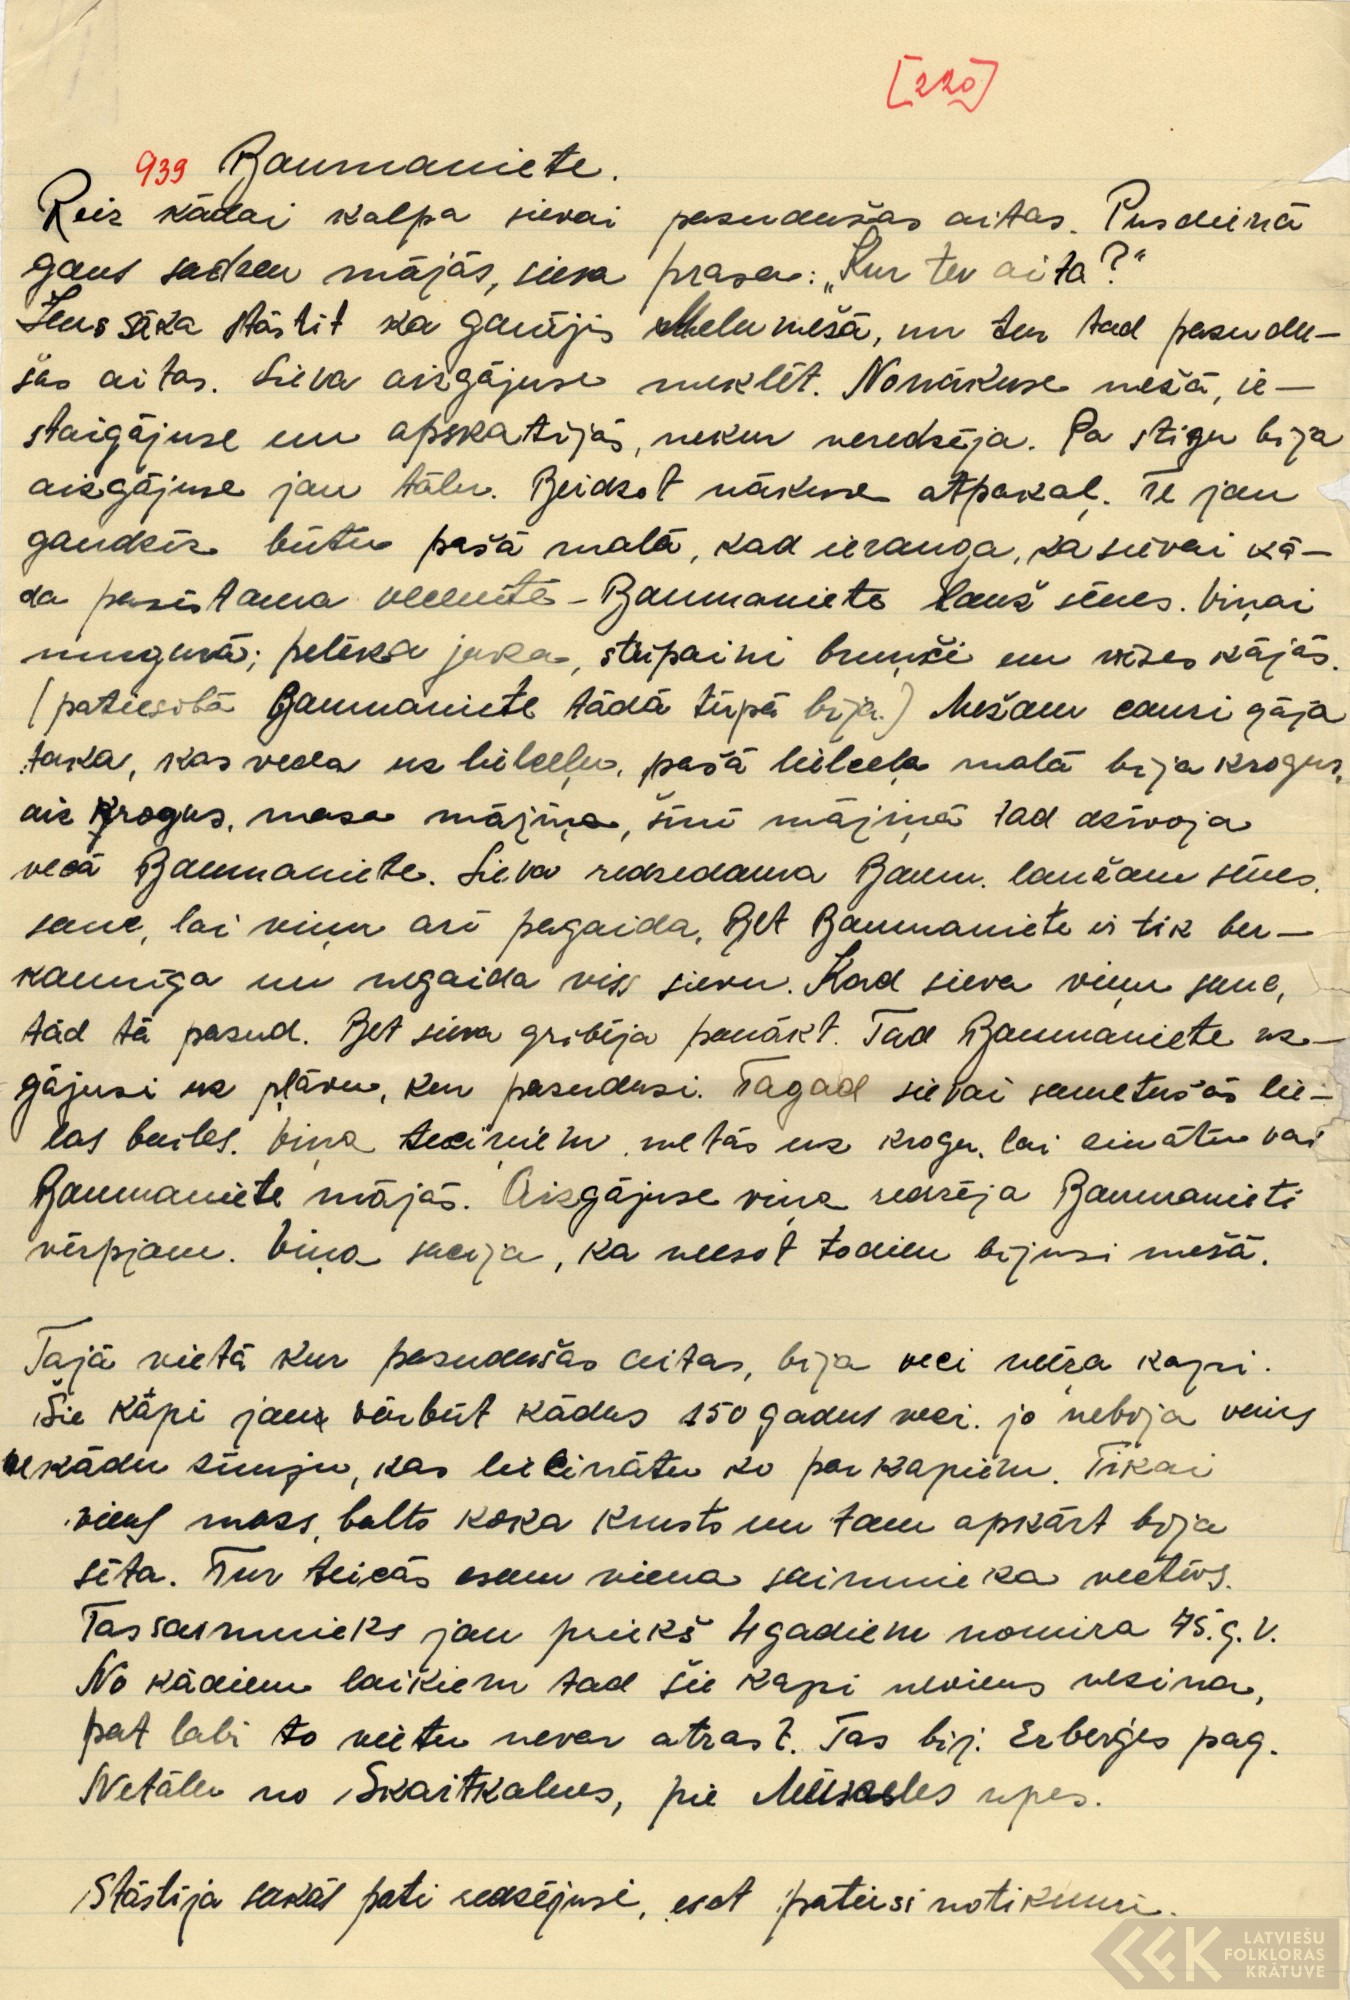 [220]
939 Baumaniete.
Reiz kādai kalpa sievai pasudušas aitas. Pusdienā
gans sadzen mājās, sieva prasa: „Kur tev aita?"
Žens sāka stāstīt ka ganījis Melnmežā, un tur tad pasudu-
šas aitas. Sieva aizgājuse meklēt. Nonākuse mežā, ie-
staigājuse un apskatījās, nekur neredzēja. Pa stigu bija
aizgājuse jau tālu. Beidzot nākuse atpakaļ. Te jau
gandrīz būtu pašā malā, kad ierauga, ka sievai kā-
da pazīstama vecenīte - Baumaniete lauž sēnes. Viņai
mugurā; pelēka jaka, strīpaini brunči un vīzes kājās.
(patiesībā Baumaniete tādā tērpā bija.) Mežam cauri gāja
taka, kas veda uz lielceļu, pašā lielceļa malā bija krogus,
aiz krogus, maza mājiņa, šinī mājiņā tad dzīvoja
vecā Baumaniete. Sieva redzedama Baum. laužam sēnes,
sauc, lai viņu arī pagaida. Bet Baumaniete ir tik ber-
kaunīga un negaida viss sievu. Kad sieva viņu sauc,
tād tā pasud. Bet sieva gribēja panākt. Tad Baumaniete uz-
gājusi uz pļavu, kur pasudusi. Tagad sievai sametušās lie-
las bailes. Viņa teciņiem metās uz krogu, lai zinātu vai
Baumaniete mājās. Aizgājuse viņa redzēja Baumanieti
vērpjam. Viņa sacīja, ka neesot todien bijusi mežā.
Tajā vietā kur pasudušas aitas, bija veci mēra kapi.
Šie kapi jau varbūt kādus 150 gadus veci. jo nebija vairs
nekādu zīmju, kas liecinātu ko par kapiem. Tikai
viens mazs, balts koka krusts un tam apkārt bija
sēta. Tur teicās esam viena saimnieka vectēvs.
Tas saimnieks jau priekš 4 gadiem nomira 75.g.v.
No kādiem laikiem tad šie kapi neviens nezina,
pat labi to vietu nevar atrast. Tas bij. Erberģes pag.
Netālu no Skaitkalnes, pie upes.
Stāstīja sakās pati redzējusi, esot patiesi notikumi.
LATVIEŠU
FOLKLORAS
KRĀTUVE